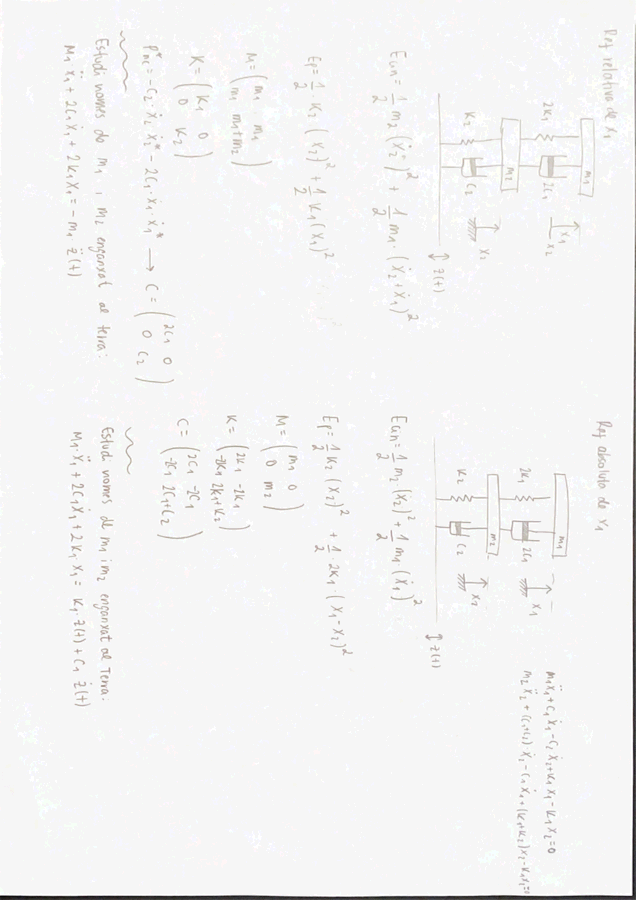 Ref relativa de x₁
m₁
2k₁
2C₁
x₁
x₂
m₂
k₂
C₂
x₂
z(t)
Ecin = 1/2 m₂ (ẋ₂)² + 1/2 m₁·(ẋ₂+ẋ₁)²
Ep = 1/2 · k₂ (x₂)² + 1/2 k₁(x₁)²
M = (m₁ m₁
m₁ m₁+m₂)
K = (k₁ 0
0 k₂)
= -C₂·ẋ₂·ẋ₂* - 2C₁·ẋ₁·ẋ₁* → C = (2C₁ 0
0 C₂)
Estudi nomes de m₁ i m₂ enganxat al terra:
M₁ẍ₁ + 2C₁ẋ₁ + 2k₁x₁ = -m₁ z̈(t)
Ref absoluta de x₁
m₁
2k₁
2C₁
x₁
m₂
k₂
C₂
x₂
z(t)
Ecin = 1/2 m₂ (ẋ₂)² + 1/2 m₁ (ẋ₁)²
Ep = 1/2 k₂ (x₂)² + 1/2 · 2k₁·(x₁-x₂)²
M = (m₁ 0
0 m₂)
K = (2k₁ -2k₁
-2k₁ 2k₁+k₂)
C = (2C₁ -2C₁
-2C₁ 2C₁+C₂)
Estudi nomes de m₁ i m₂ enganxat al Terra:
M₁·ẍ₁ + 2C₁ẋ₁ + 2k₁·x₁ = k₁·z(t) + C₁ ż(t)
m₁ẍ₁+C₁ẋ₁-C₂ẋ₂+k₁x₁-k₁x₂=0
m₂ẍ₂+(C₁+C₂)ẋ₂-C₁ẋ₁+(k₁+k₂)x₂-k₁x₁=0